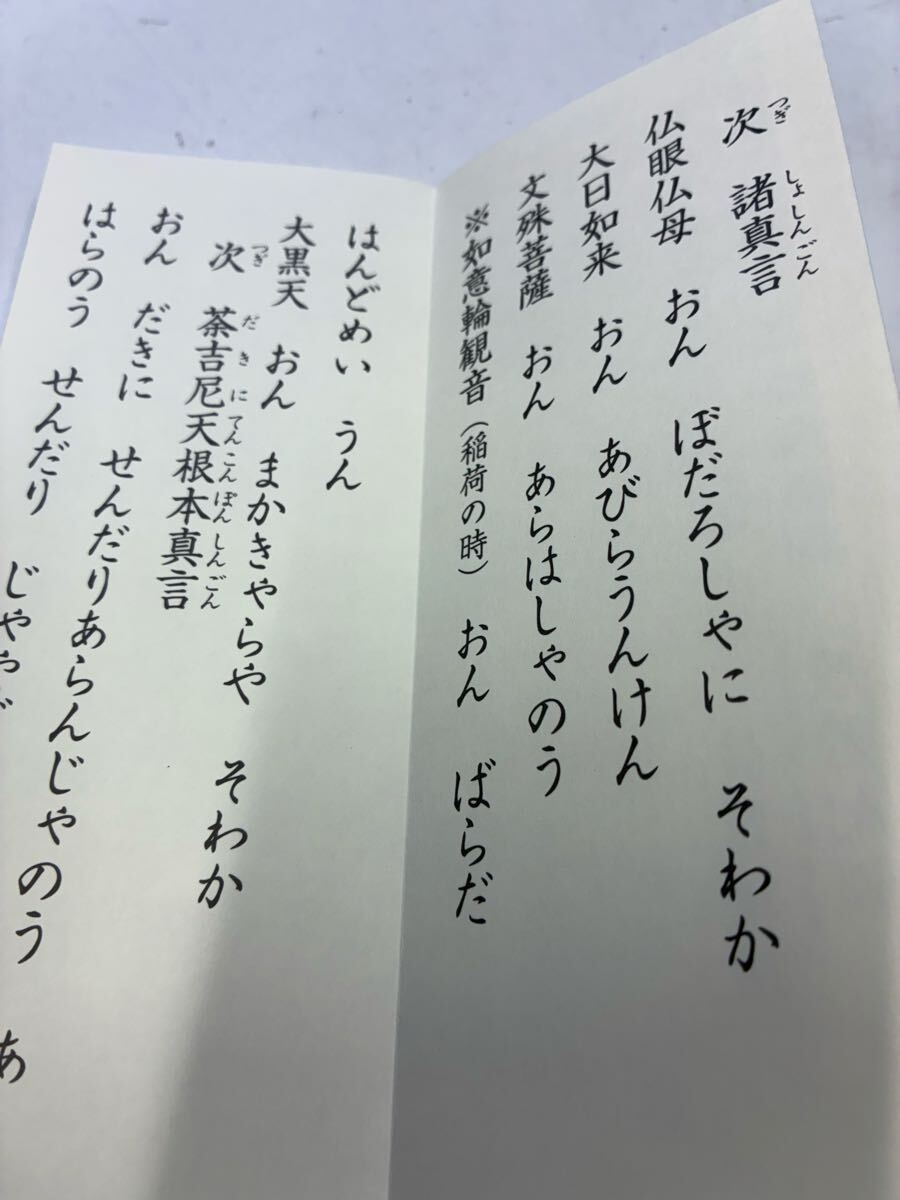 次　諸真言
つぎ　しょしんごん
仏眼仏母　おん　ぼだろしゃに　そわか
大日如来　おん　あびらうんけん
文殊菩薩　おん　あらはしゃのう
※如意輪観音（稲荷の時）　おん　ばらだ
はんどめい　うん
大黒天　おん　まかきゃらや　そわか
次　茶吉尼天根本真言
つぎ　だきにてんこんぽんしんごん
おん　だきに　せんだりあらんじゃのう　あ
はらのう　せんだり　じゃや